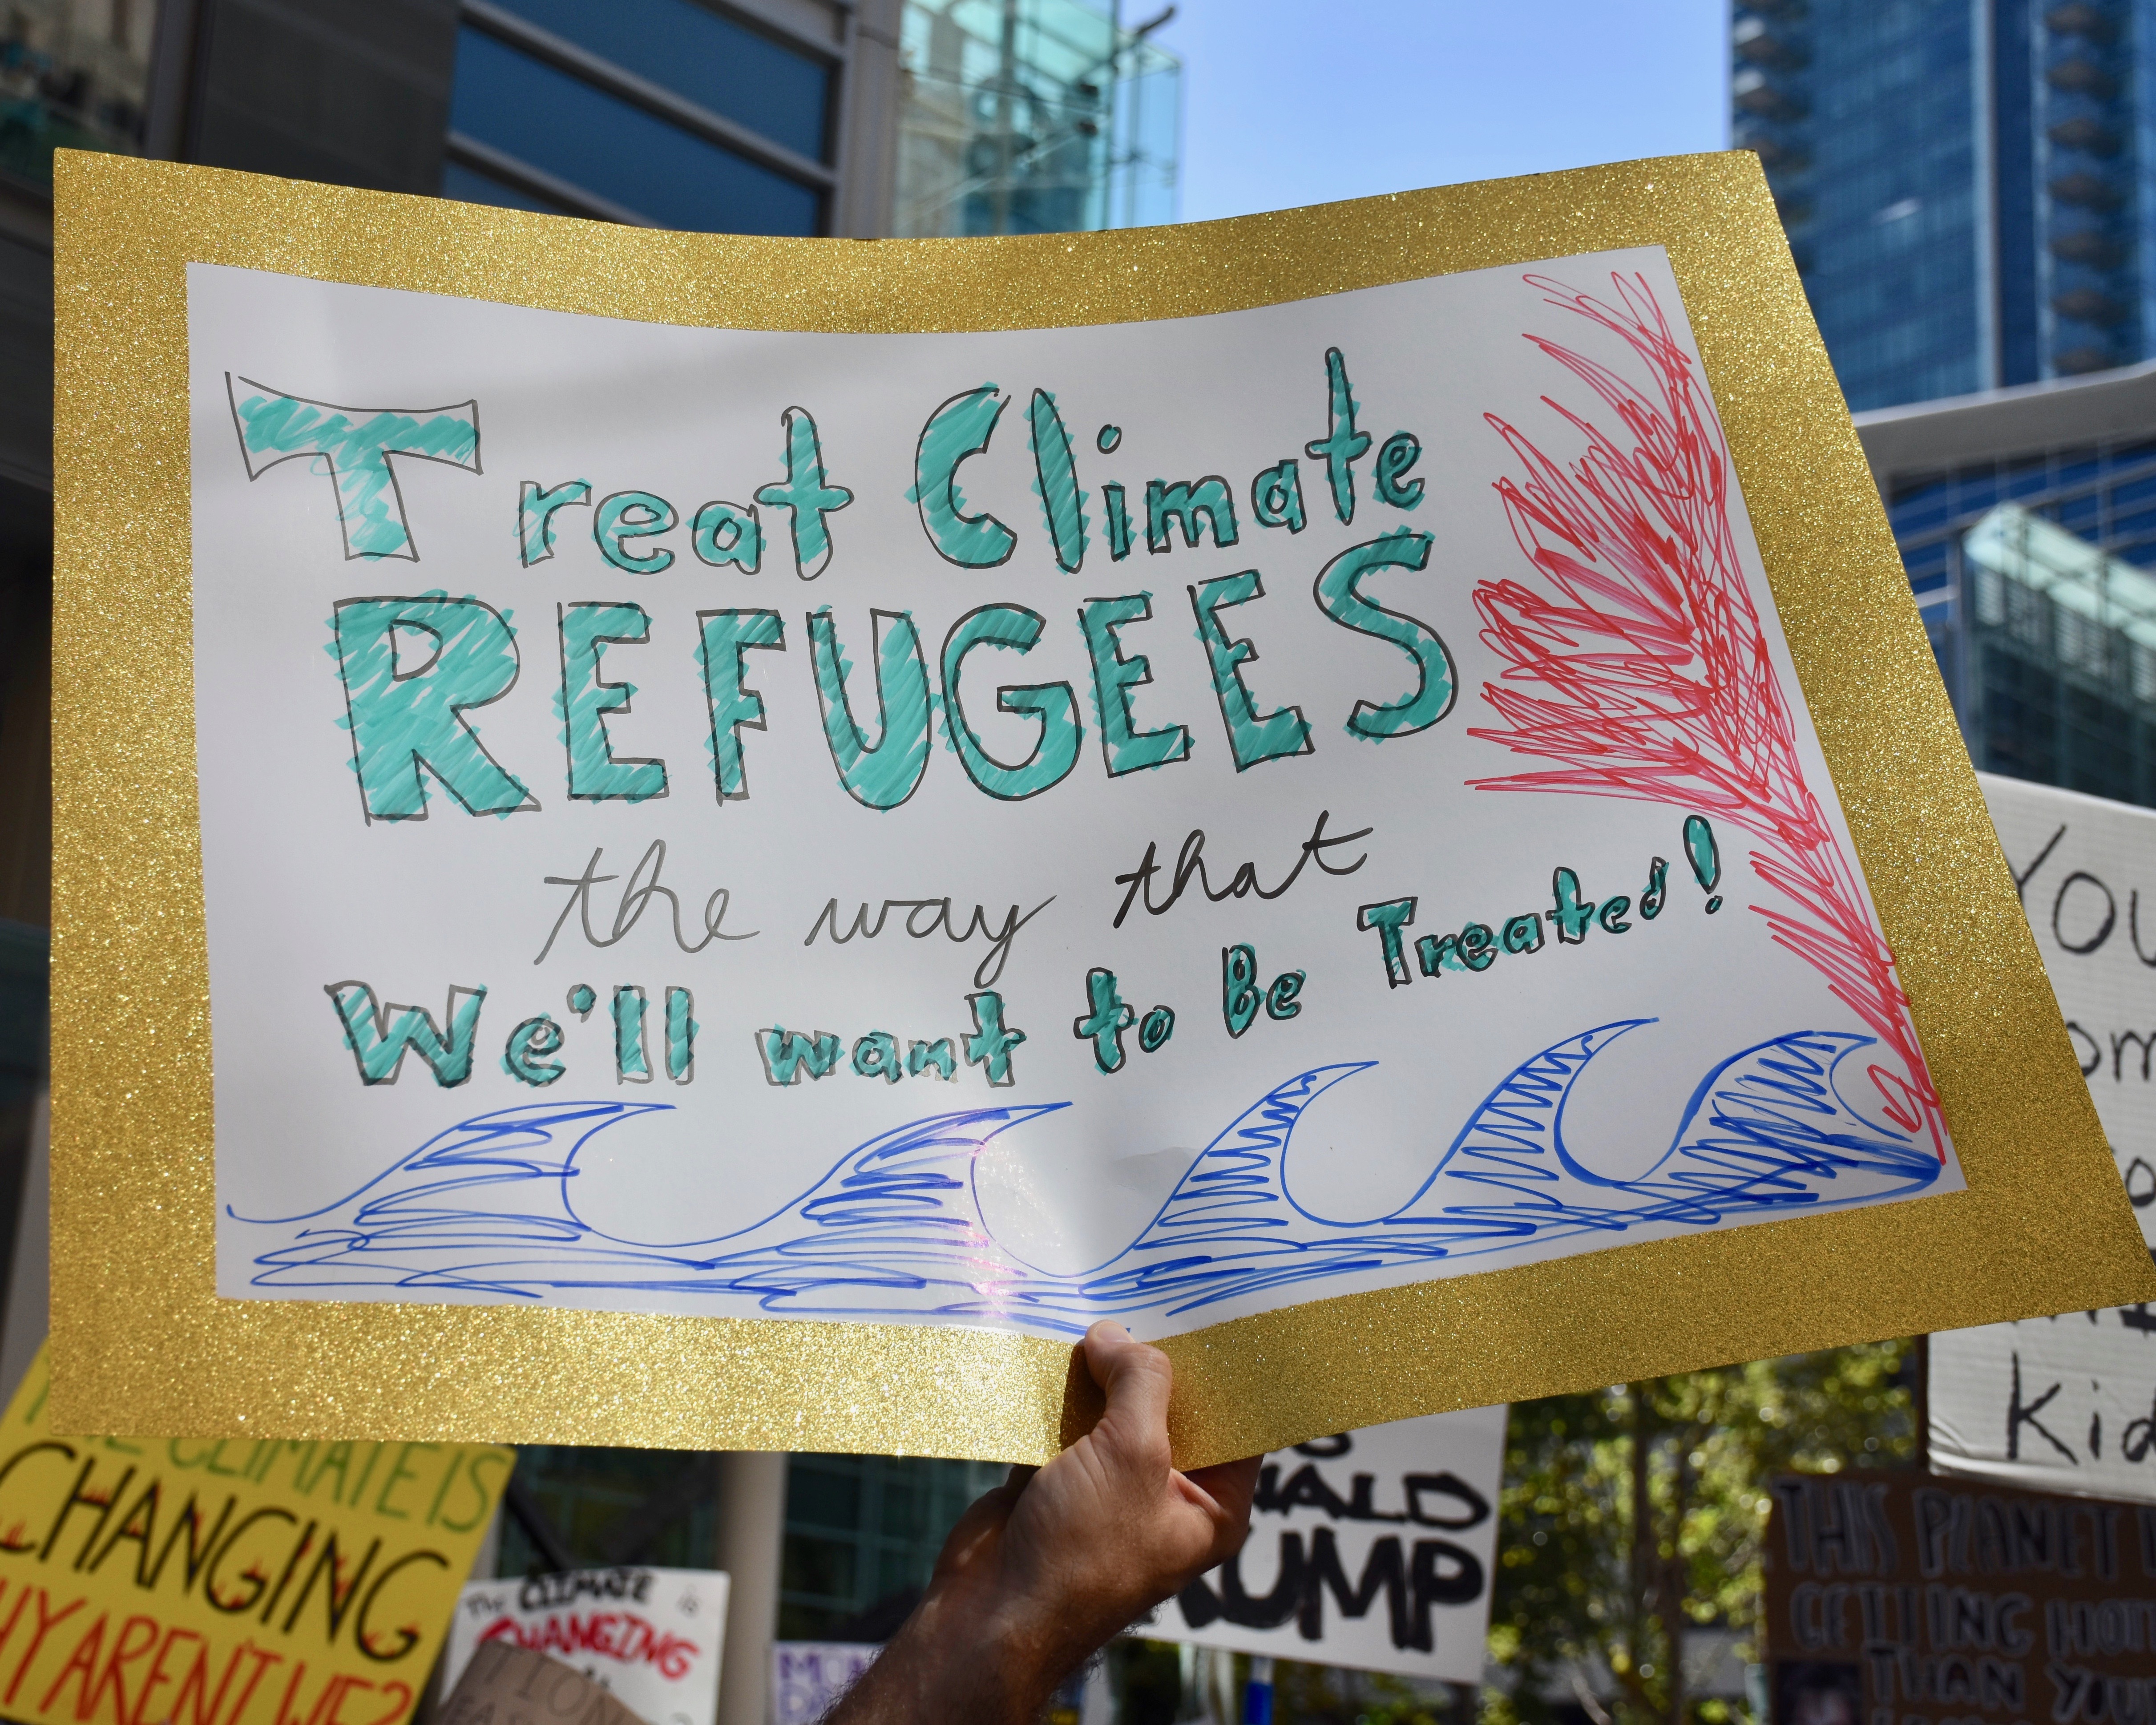 Treat Climate
REFUGEES
the way that
We'll want to Be Treated!
CLIMATE IS
CHANGING
ARENT WE?
The CLIMATE is
CHANGING
TRUMP
THIS PLANET
GETTING HOT
THAN YOU